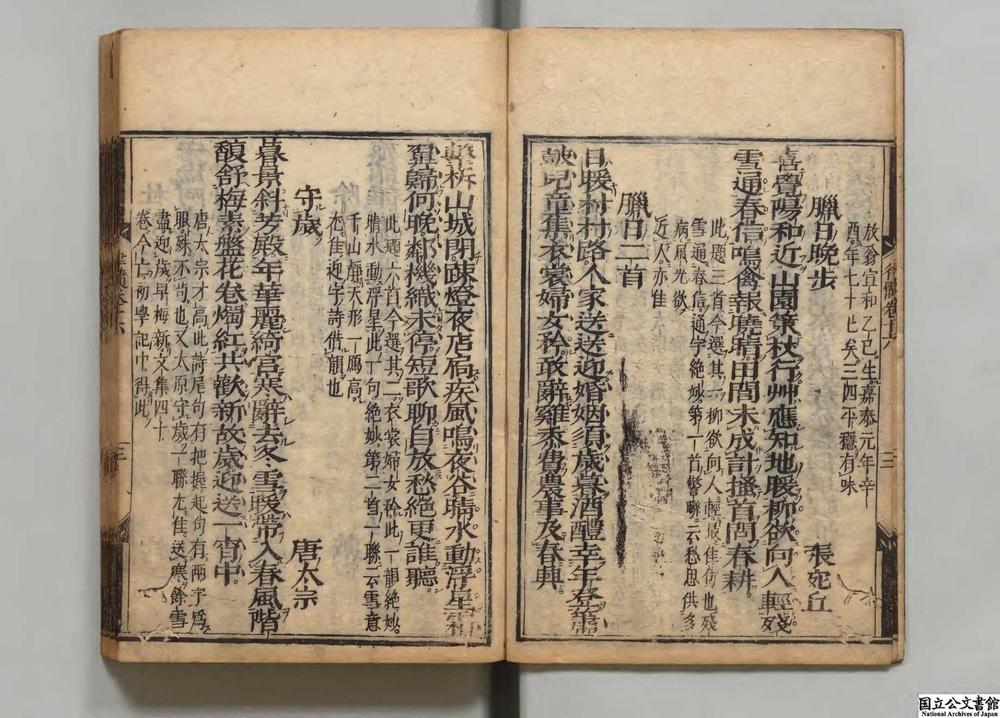 放翁宣和乙巳生嘉泰元年辛
酉年七十七矣三四平穩有味
臘日晚步 張宛丘
喜覺陽和近山園策杖行草應知地暖柳欲向人輕殘
雪通春信鳴禽報曉晴田間未成計搔首問春耕
此題三首今選其一柳欲向人輕最佳句也殘
雪通春信通字絶妙第一首聯云愁思供多
病風光欲
近人亦佳
臘日二首
日暖村村路人家送送迎婚姻須歲暮酒醴幸年登簫
鼓兒童集衣裳婦女矜敢辭雞黍費農事及春興
擊柝山城閉疎燈夜店扃疾風鳴夜谷晴水動浮星霜
翼歸何晚鄰機織未停短歌聊自放愁絶更誰聽
此題六首今選其二衣裳婦女矜此一韻絶妙
晴水動浮星此一句絶妙第二首一聯云雪意
千山靜天形一鴈高
尤佳迎字詩借韻也
守歲 唐太宗
暮景斜芳殿年華麗綺宮寒辭去冬雪暖帶入春風階
馥舒梅素盤花卷燭紅共歡新故歲迎送一宵中
唐太宗才高此詩尾句有把握起句有兩字爲
眼殊不苟也又太原守歲一聯尤佳送寒餘雪
盡迎歲早梅新文集四十
卷今亡初學記中得此
三
国立公文書館
National Archives of Japan